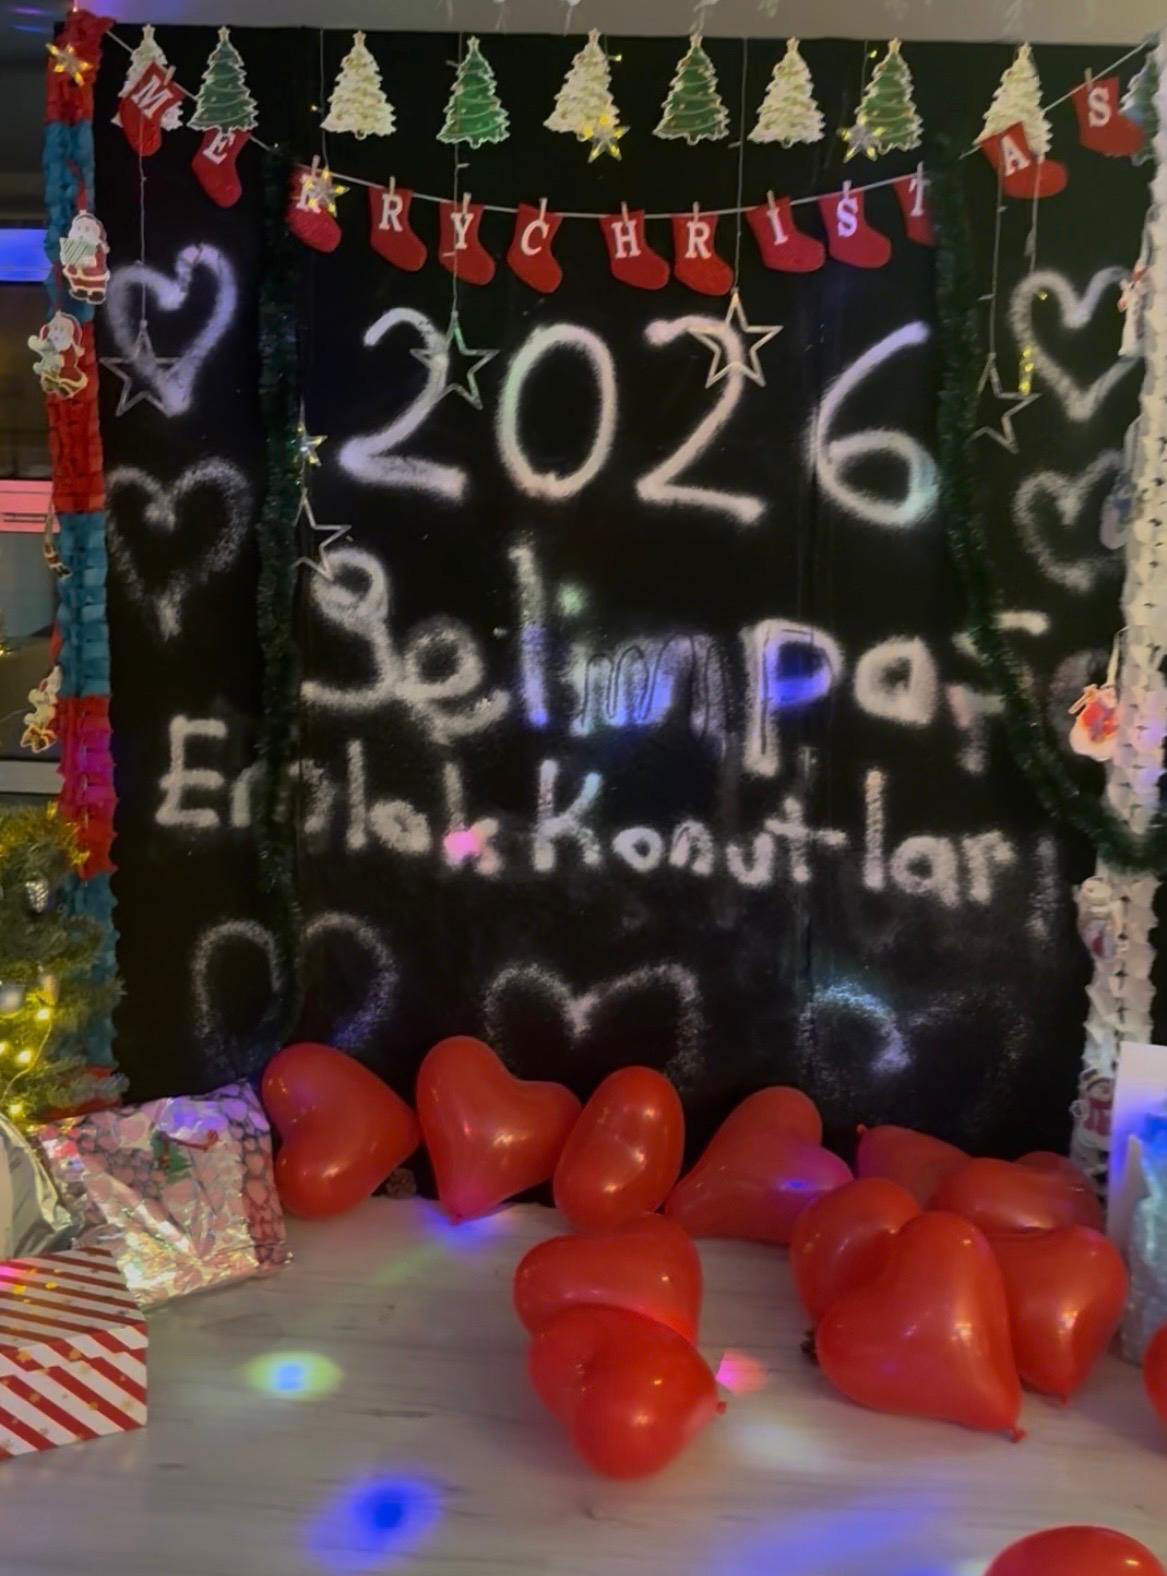 MERRYCHRISTAS
2026
Selimpaş
Emlak Konutları